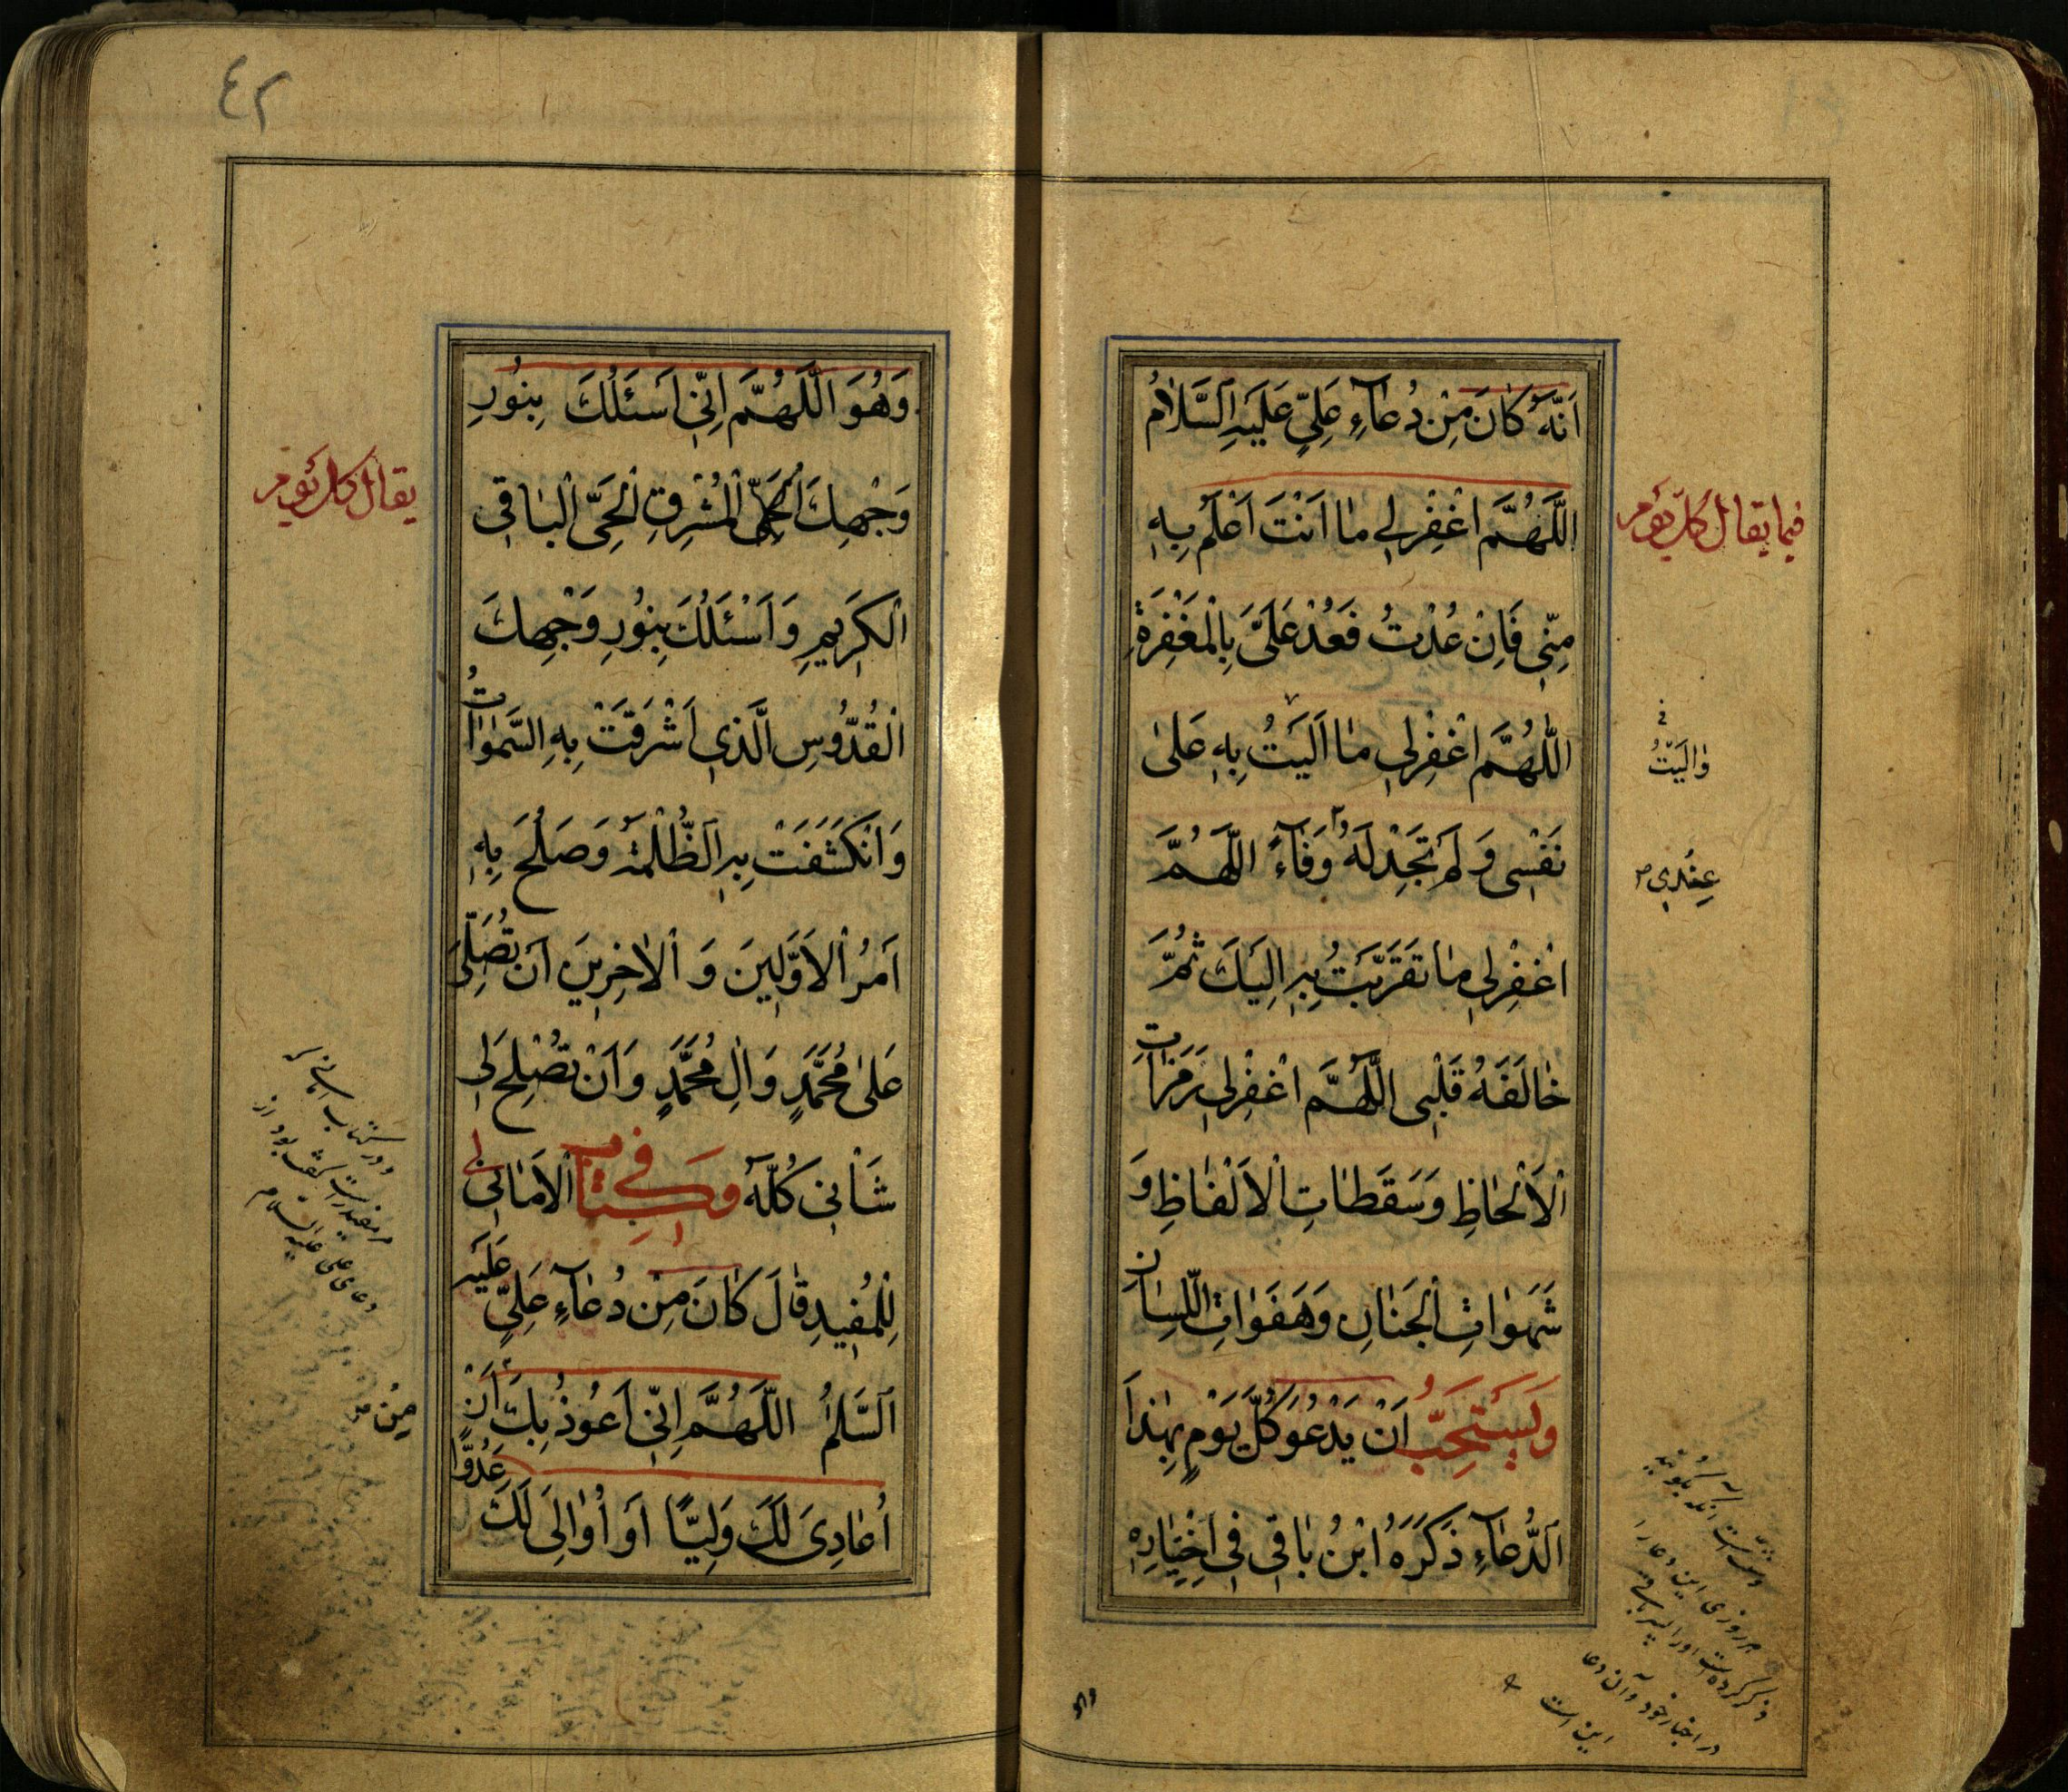 اَنَّهُ كَانَ مِنْ دُعَاءِ عَلِيٍّ عَلَيْهِ السَّلَامُ
اَللَّهُمَّ اغْفِرْ لِي مَا اَنْتَ اَعْلَمُ بِهِ
مِنِّي فَاِنْ عُدْتُ فَعُدْ عَلَيَّ بِالْمَغْفِرَةِ
اَللَّهُمَّ اغْفِرْ لِي مَا اَلَيْتُ بِهِ عَلَى
نَفْسِي وَلَمْ تَجِدْ لَهُ وَفَاءً اَللَّهُمَّ
اغْفِرْ لِي مَا تَقَرَّبْتُ بِهِ اِلَيْكَ ثُمَّ
خَالَفَهُ قَلْبِي اَللَّهُمَّ اغْفِرْ لِي رَمَزَاتِ
الْاَلْحَاظِ وَسَقَطَاتِ الْاَلْفَاظِ وَ
شَهَوَاتِ الْجَنَانِ وَهَفَوَاتِ اللِّسَانِ
وَيُسْتَحَبُّ اَنْ يَدْعُوَ كُلَّ يَوْمٍ بِهٰذَا
الدُّعَاءِ ذَكَرَهُ ابْنُ بَاقِي فِي اخْتِيَارِهِ
فيما يقال كل يوم
وَاَلَيْتُ
عِنْدِي
وسنت است آنكه بگويند
هر روزی این دعا را
ذکر کرده است او را پسر باقی
در اختیار خود و آن دعا
این است
وهو
٤٢
وَهُوَ اَللَّهُمَّ اِنِّي اَسْئَلُكَ بِنُورِ
وَجْهِكَ الْمُشْرِقِ الْحَيِّ الْبَاقِي
الْكَرِيمِ وَاَسْئَلُكَ بِنُورِ وَجْهِكَ
الْقُدُّوسِ الَّذِي اَشْرَقَتْ بِهِ السَّمٰوَاتُ
وَانْكَشَفَتْ بِهِ الظُّلْمَةُ وَصَلُحَ بِهِ
اَمْرُ الْاَوَّلِينَ وَ الْاٰخِرِينَ اَنْ تُصَلِّيَ
عَلَى مُحَمَّدٍ وَ اٰلِ مُحَمَّدٍ وَ اَنْ تُصْلِحَ لِي
شَأْنِي كُلَّهُ وَ فِي كِتَابِ الْاَمَالِي
لِلْمُفِيدِ قَالَ كَانَ مِنْ دُعَاءِ عَلِيٍّ عَلَيْهِ
السَّلٰمُ اَللَّهُمَّ اِنِّي اَعُوذُ بِكَ اَنْ
اُعَادِيَ لَكَ وَلِيًّا اَوْ اُوَالِيَ لَكَ عَدُوًّا
يقال كل يوم
ودر کتاب امالی
دعای علی علیه السلام
مِنْ